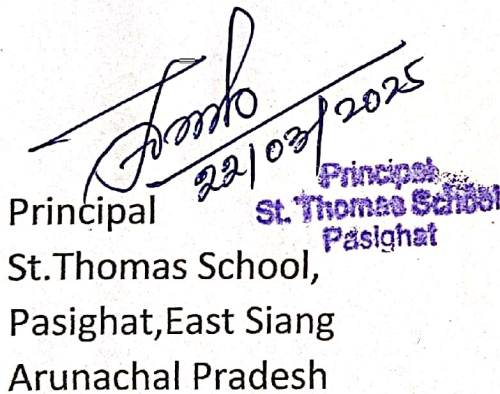 22/03/2025
Principal
St. Thomas School
Pasighat
Principal
St.Thomas School,
Pasighat,East Siang
Arunachal Pradesh